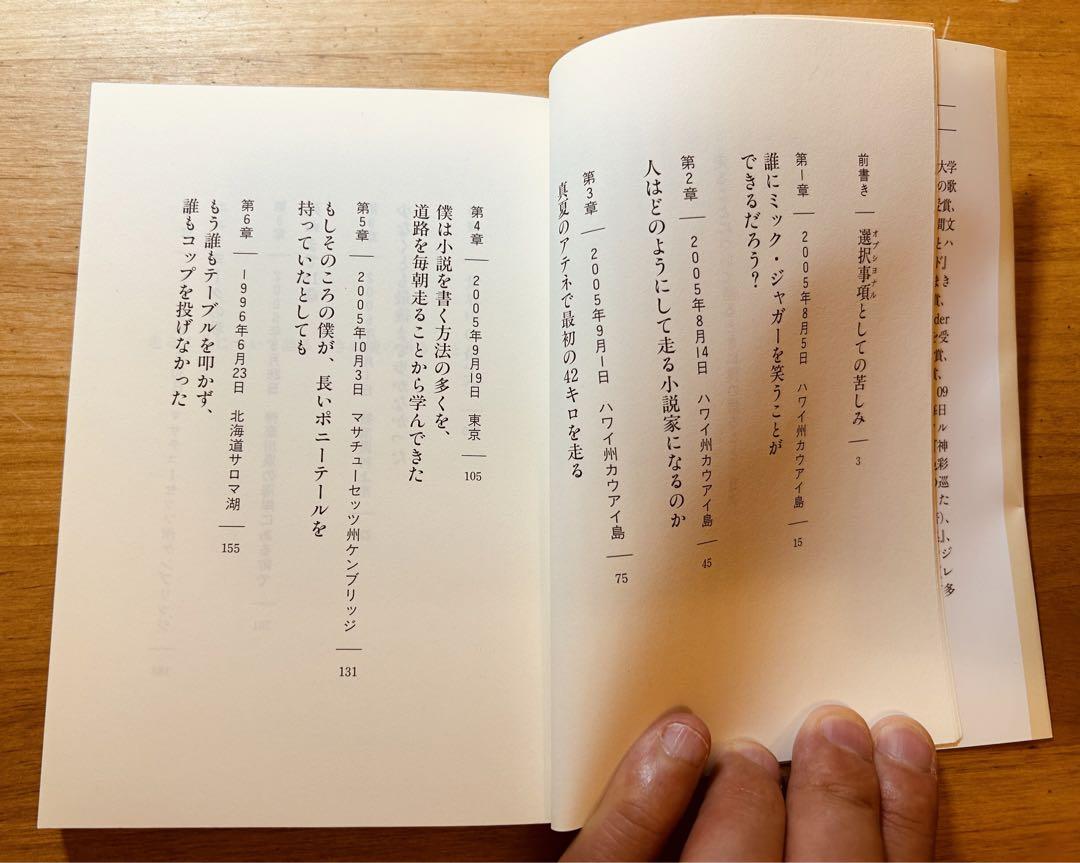 前書き — 選択事項としての苦しみ — 3
オプショナル
第1章 — 2005年8月5日 ハワイ州カウアイ島 — 15
誰にミック・ジャガーを笑うことが
できるだろう？
第2章 — 2005年8月14日 ハワイ州カウアイ島 — 45
人はどのようにして走る小説家になるのか
第3章 — 2005年9月1日 ハワイ州カウアイ島 — 75
真夏のアテネで最初の42キロを走る
第4章 — 2005年9月19日 東京 — 105
僕は小説を書く方法の多くを、
道路を毎朝走ることから学んできた
第5章 — 2005年10月3日 マサチューセッツ州ケンブリッジ — 131
もしそのころの僕が、長いポニーテールを
持っていたとしても
第6章 — 1996年6月23日 北海道サロマ湖 — 155
もう誰もテーブルを叩かず、
誰もコップを投げなかった